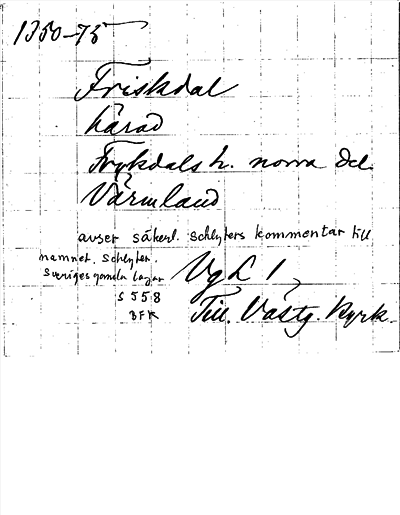 1350-75
Friskdal
härad
Frykdals h. norra del.
Värmland
avser säkerl. Schlyters kommentar till
namnet. Schlyter.
Sveriges gamla lagar
s 558
BFK
Vg L 1,
Till. Västg. Kyrk.